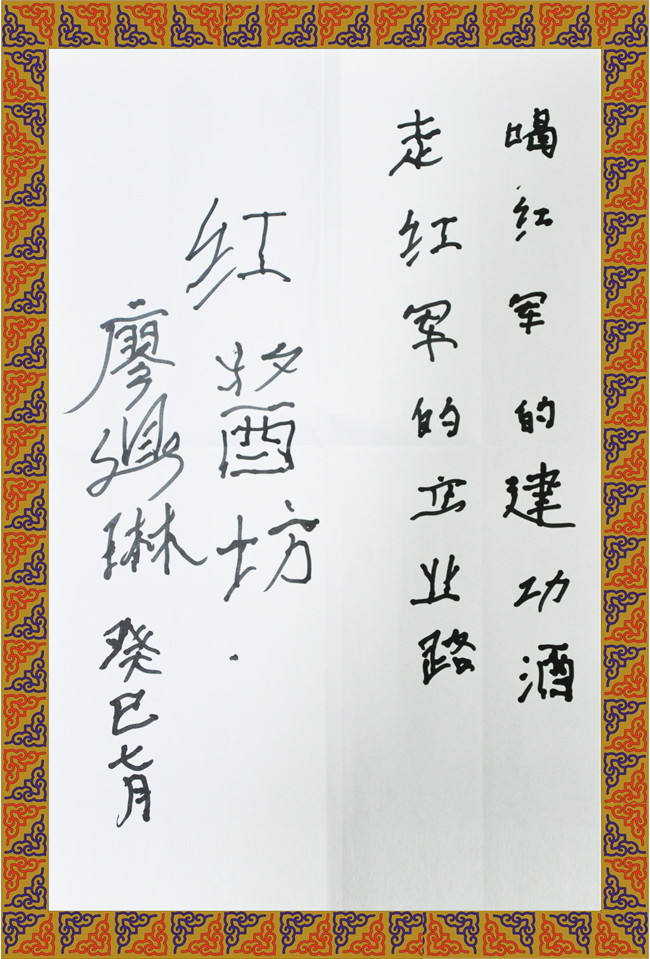 喝红军的建功酒
走红军的立业路
红酱坊
廖鼎琳 癸巳七月